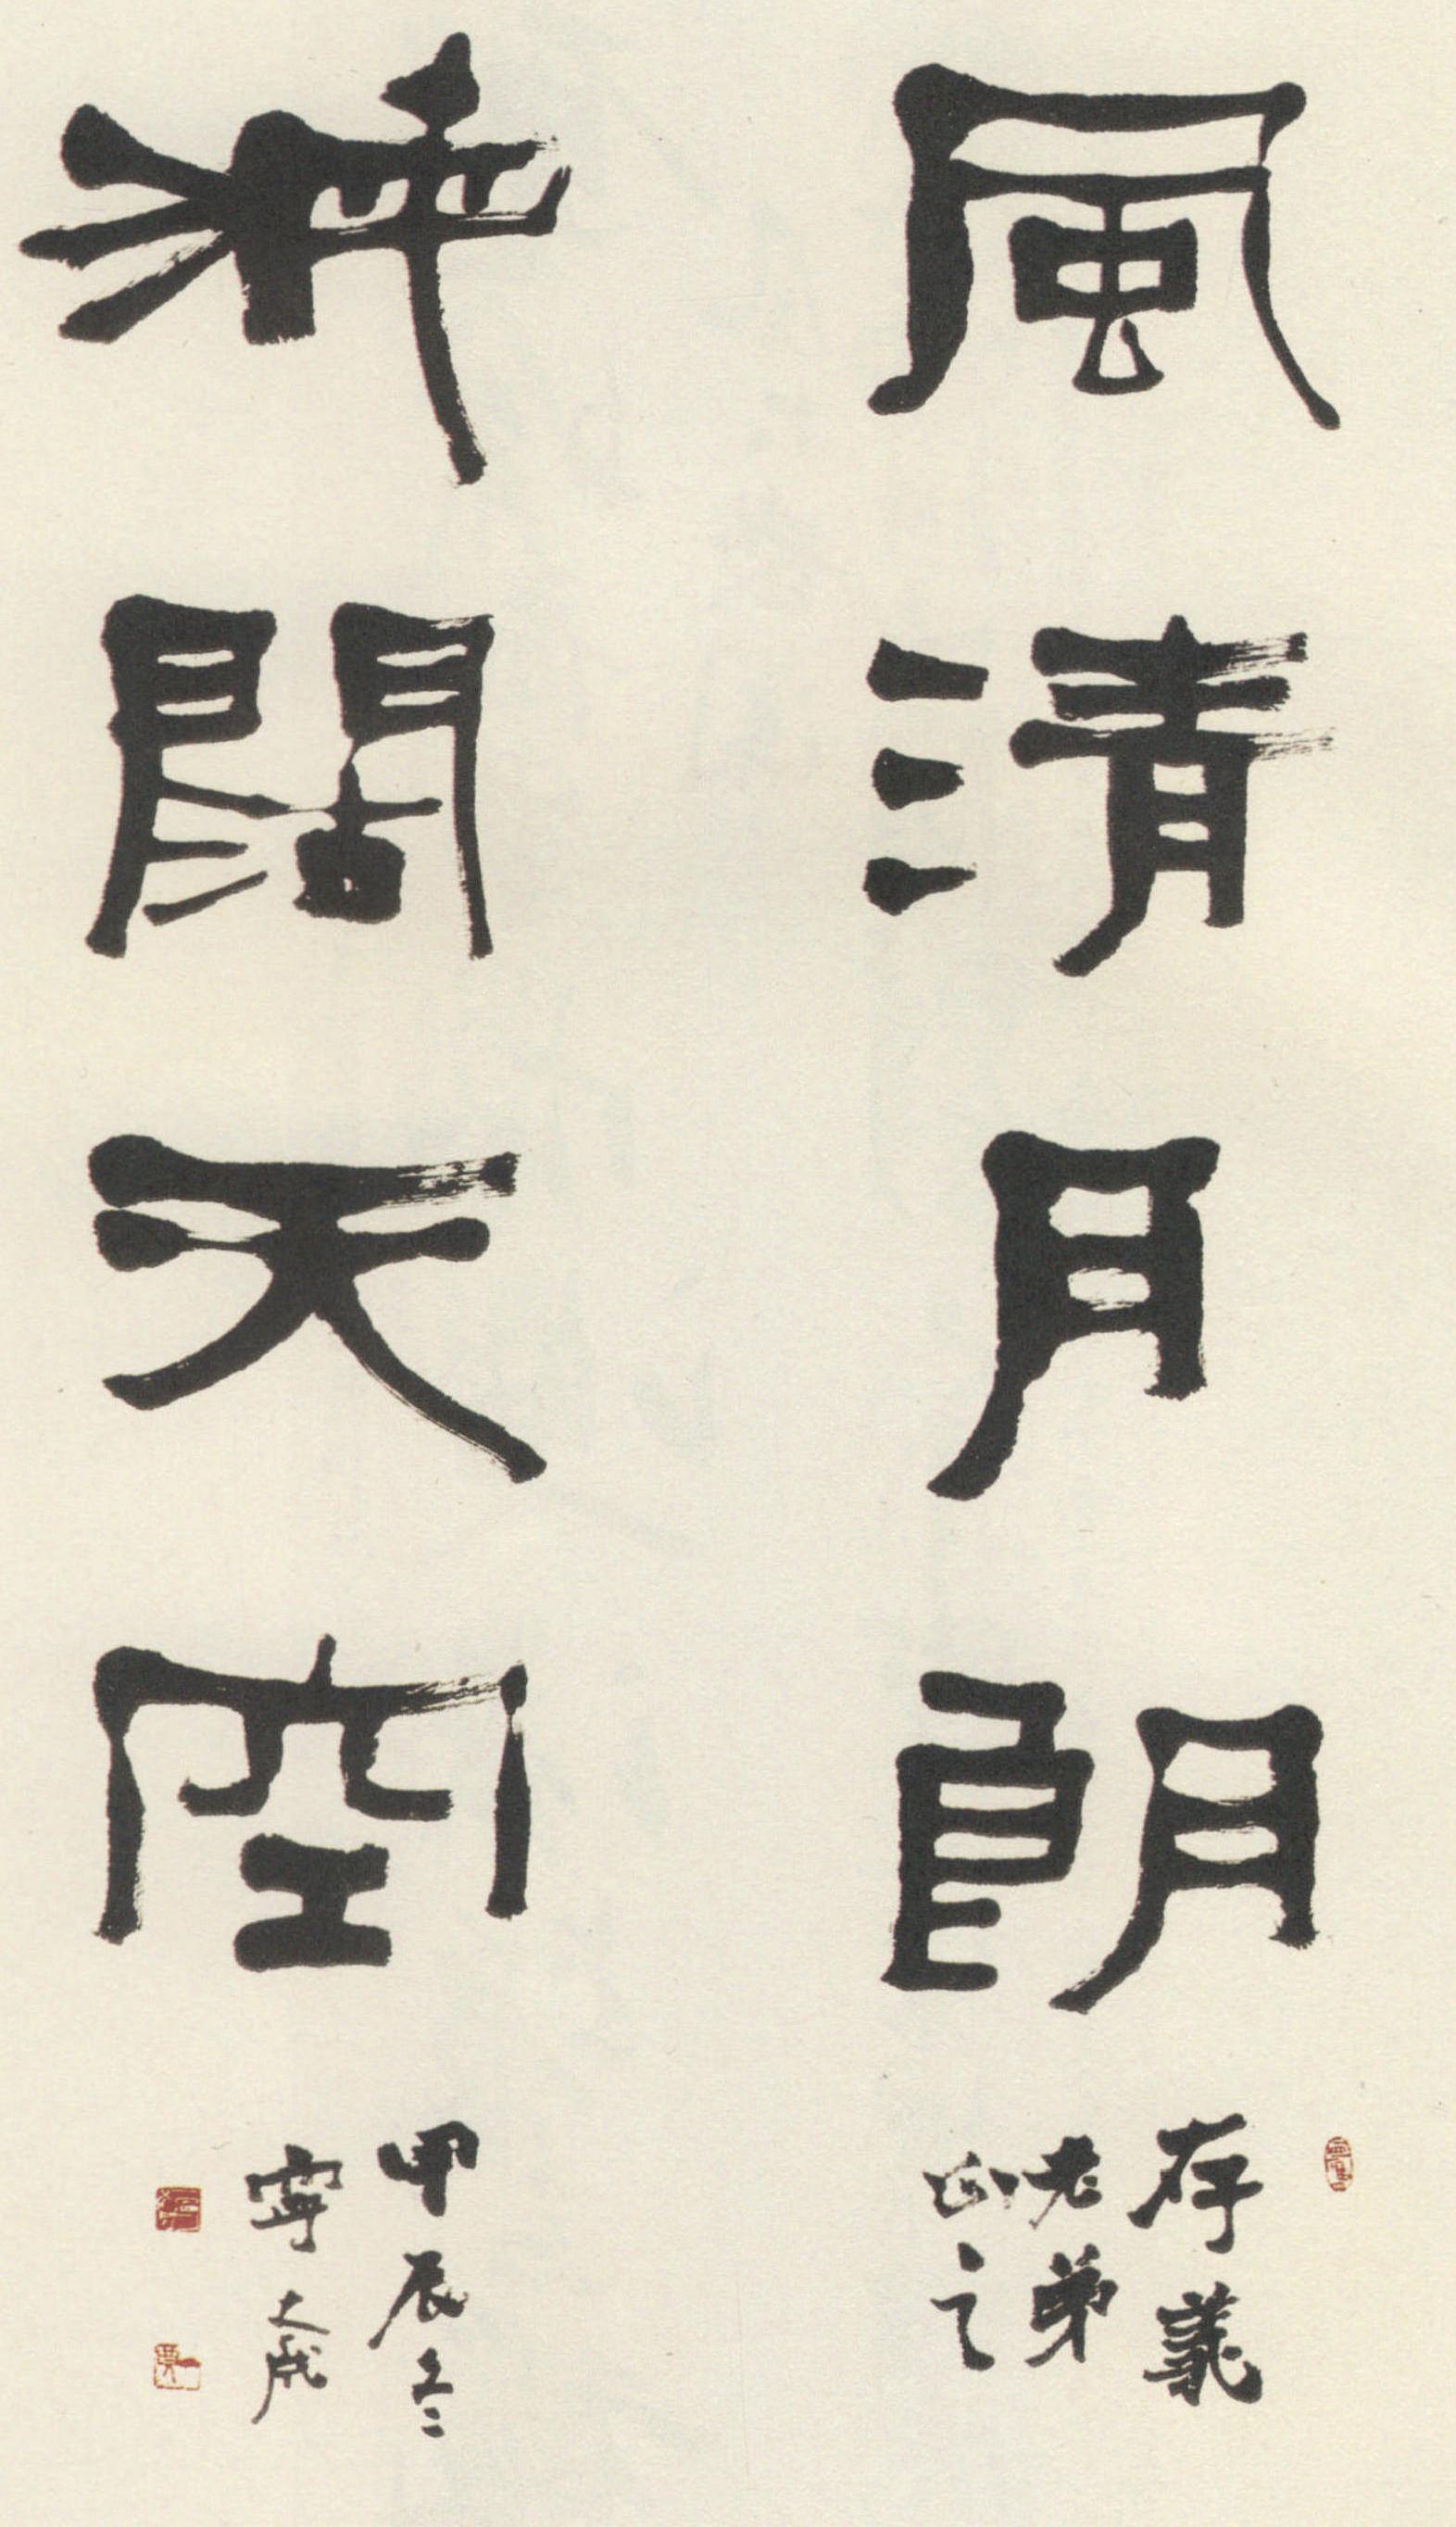 風清月朗
存義
老弟
正之
海闊天空
甲辰冬
寧大成